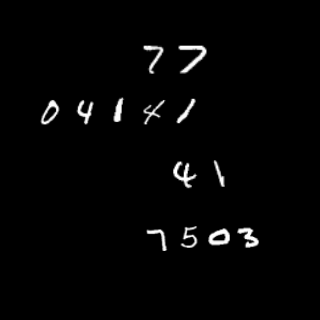 77
04141
41
7503